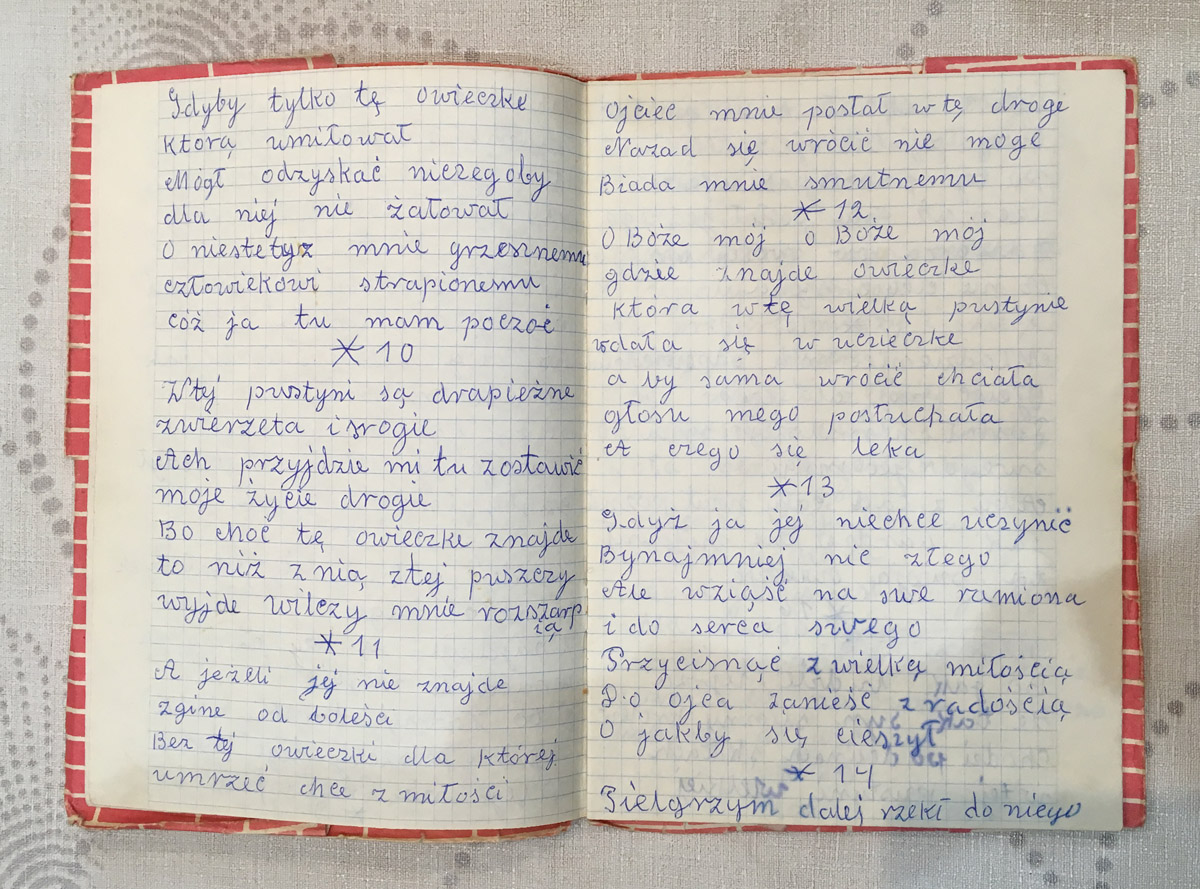 Gdyby tylko tę owieczke
którą umiłował
Mógł odzyskać niczegoby
dla niej nie żałował
O niestetyż mnie grzesznemu
człowiekowi strapionemu
cóż ja tu mam poczoć
* 10
W tej pustyni są drapieżne
zwierzeta i srogie
Ach przyjdzie mi tu zostawić
moje życie drogie
Bo choć tę owieczke znajde
to niż z nią ztej puszczy
wyjde wilczy mnie rozszarp
ią
* 11
A jeżeli jej nie znajde
zgine od boleści
Bez tej owieczki dla której
umrzeć chce z miłości
Ojciec mnie posłał w tę droge
Nazad się wrócić nie moge
Biada mnie smutnemu
* 12
O Boże mój o Boże mój
gdzie znajde owieczke
która w tę wielką pustynie
wdała się w ucieczke
a by sama wrócić chciała
głosu mego posłuchała
A czego się leka
* 13
Gdyż ja jej niechce uczynić
Bynajmniej nic złego
Ale wziąść na swe ramiona
i do serca swego
Przycisnąć z wielką miłością
Do ojca zanieść z radością
O jakby się cieszył
* 14
Pielgrzym dalej rzekł do niego